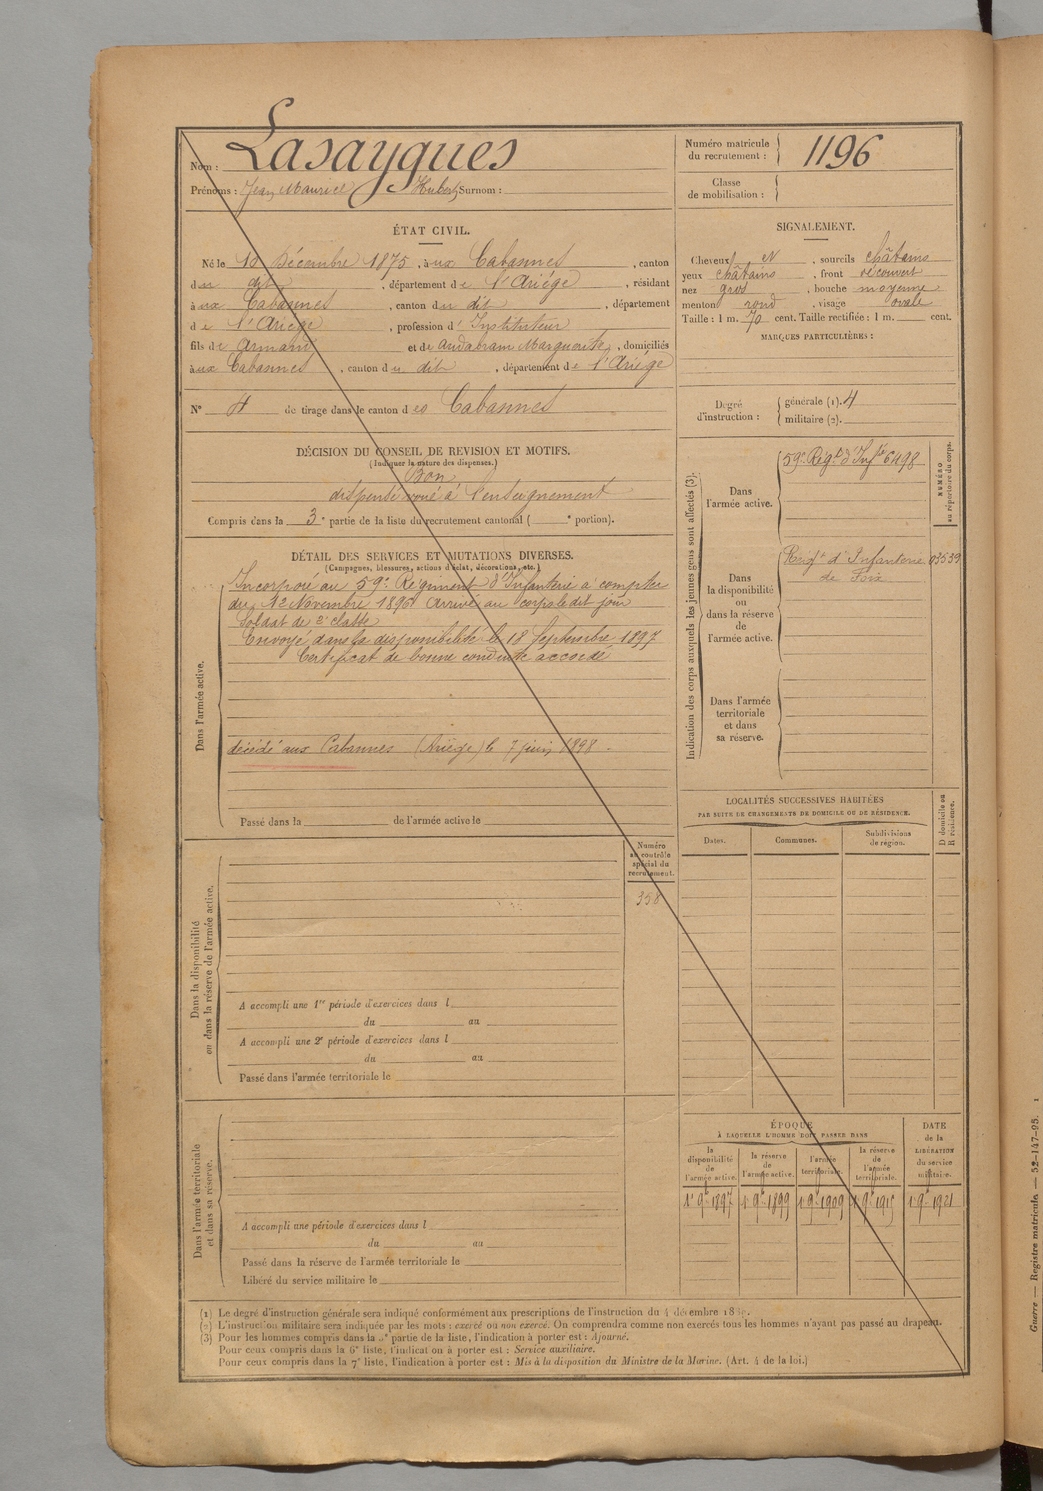 Nom : Lasaygues
Prénoms : Jean Maurice Hubert Surnom :
Numéro matricule du recrutement : 1196
Classe de mobilisation :
ÉTAT CIVIL.
Né le 10 Décembre 1875, à ux Cabannes, canton
du dit, département de l'Ariège, résidant
à ux Cabannes, canton du dit, département
de l'Ariège, profession d'Instituteur
fils de Armand et de Marguerite, domiciliés
à ux Cabannes, canton du dit, département de l'Ariège
N° 4 de tirage dans le canton des Cabannes
SIGNALEMENT.
Cheveux et, sourcils châtains
yeux châtains, front découvert
nez gros, bouche moyenne
menton rond, visage ovale
Taille : 1 m. 70 cent. Taille rectifiée : 1 m. cent.
MARQUES PARTICULIÈRES :
Degré d'instruction : générale (1). 4
militaire (2).
DÉCISION DU CONSEIL DE REVISION ET MOTIFS.
(Indiquer la nature des dispenses.)
Bon
dispensé voué à l'enseignement
Compris dans la 3e partie de la liste du recrutement cantonal ( e portion).
DÉTAIL DES SERVICES ET MUTATIONS DIVERSES.
(Campagnes, blessures, actions d'éclat, décorations, etc.)
Dans l'armée active.
Incorporé au 59e Régiment d'Infanterie à compter
du 12 Novembre 1896 Arrivé au corps le dit jour
Soldat de 2e classe
Envoyé dans la disponibilité le 18 Septembre 1897
Certificat de bonne conduite accordé
décédé aux Cabannes (Ariège) le 7 juin 1898.
Passé dans la de l'armée active le
Indication des corps auxquels les jeunes gens sont affectés (3).
NUMÉRO au répertoire du corps.
Dans l'armée active.
59e Régt d'Infie 6498
Dans la disponibilité ou dans la réserve de l'armée active.
Régt d'Infanterie 03539
de Foix
Dans l'armée territoriale et dans sa réserve.
LOCALITÉS SUCCESSIVES HABITÉES
PAR SUITE DE CHANGEMENTS DE DOMICILE OU DE RÉSIDENCE.
D domicile ou R résidence.
Dates.
Communes.
Subdivisions de région.
Dans la disponibilité ou dans la réserve de l'armée active.
Numéro au contrôle spécial du recrutement.
358
A accompli une 1re période d'exercices dans l
du au
A accompli une 2e période d'exercices dans l
du au
Passé dans l'armée territoriale le
Dans l'armée territoriale et dans sa réserve.
A accompli une période d'exercices dans l
du au
Passé dans la réserve de l'armée territoriale le
Libéré du service militaire le
ÉPOQUE
À LAQUELLE L'HOMME DOIT PASSER DANS
la disponibilité de l'armée active.
la réserve de l'armée active.
l'armée territoriale.
la réserve de l'armée territoriale.
DATE de la LIBÉRATION du service militaire.
1er 9bre 1897
1 9bre 1899
1 9bre 1909
1 9bre 1915
1 9bre 1921
(1) Le degré d'instruction générale sera indiqué conformément aux prescriptions de l'instruction du 4 décembre
(2) L'instruction militaire sera indiquée par les mots : exercé ou non exercé. On comprendra comme non exercés tous les hommes n'ayant pas passé au drapeau.
(3) Pour les hommes compris dans la partie de la liste, l'indication à porter est : Ajourné.
Pour ceux compris dans la 6e liste, l'indication à porter est : Service auxiliaire.
Pour ceux compris dans la 7e liste, l'indication à porter est : Mis à la disposition du Ministre de la Marine. (Art. 4 de la loi.)
Guerre — Registre matricule — 52-147-95. 1